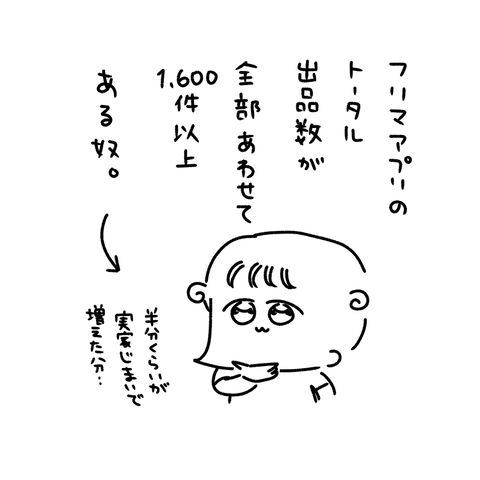 フリマアプリの
トータル
出品数が
全部あわせて
1,600
件以上
ある奴。
半分くらいが
実家じまいで
増えた分…